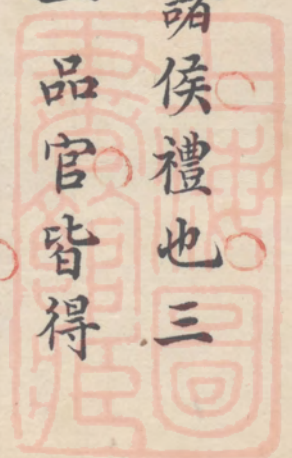 諸侯禮也三
品官皆得